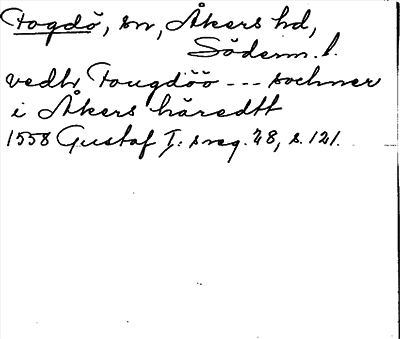 Fogdö, sn, Åkers hd,
Söderm. l.
vedhr Fougdöö --- sochner
i Åkers häredtt
1558 Gustaf I:s reg. 28, s. 121.